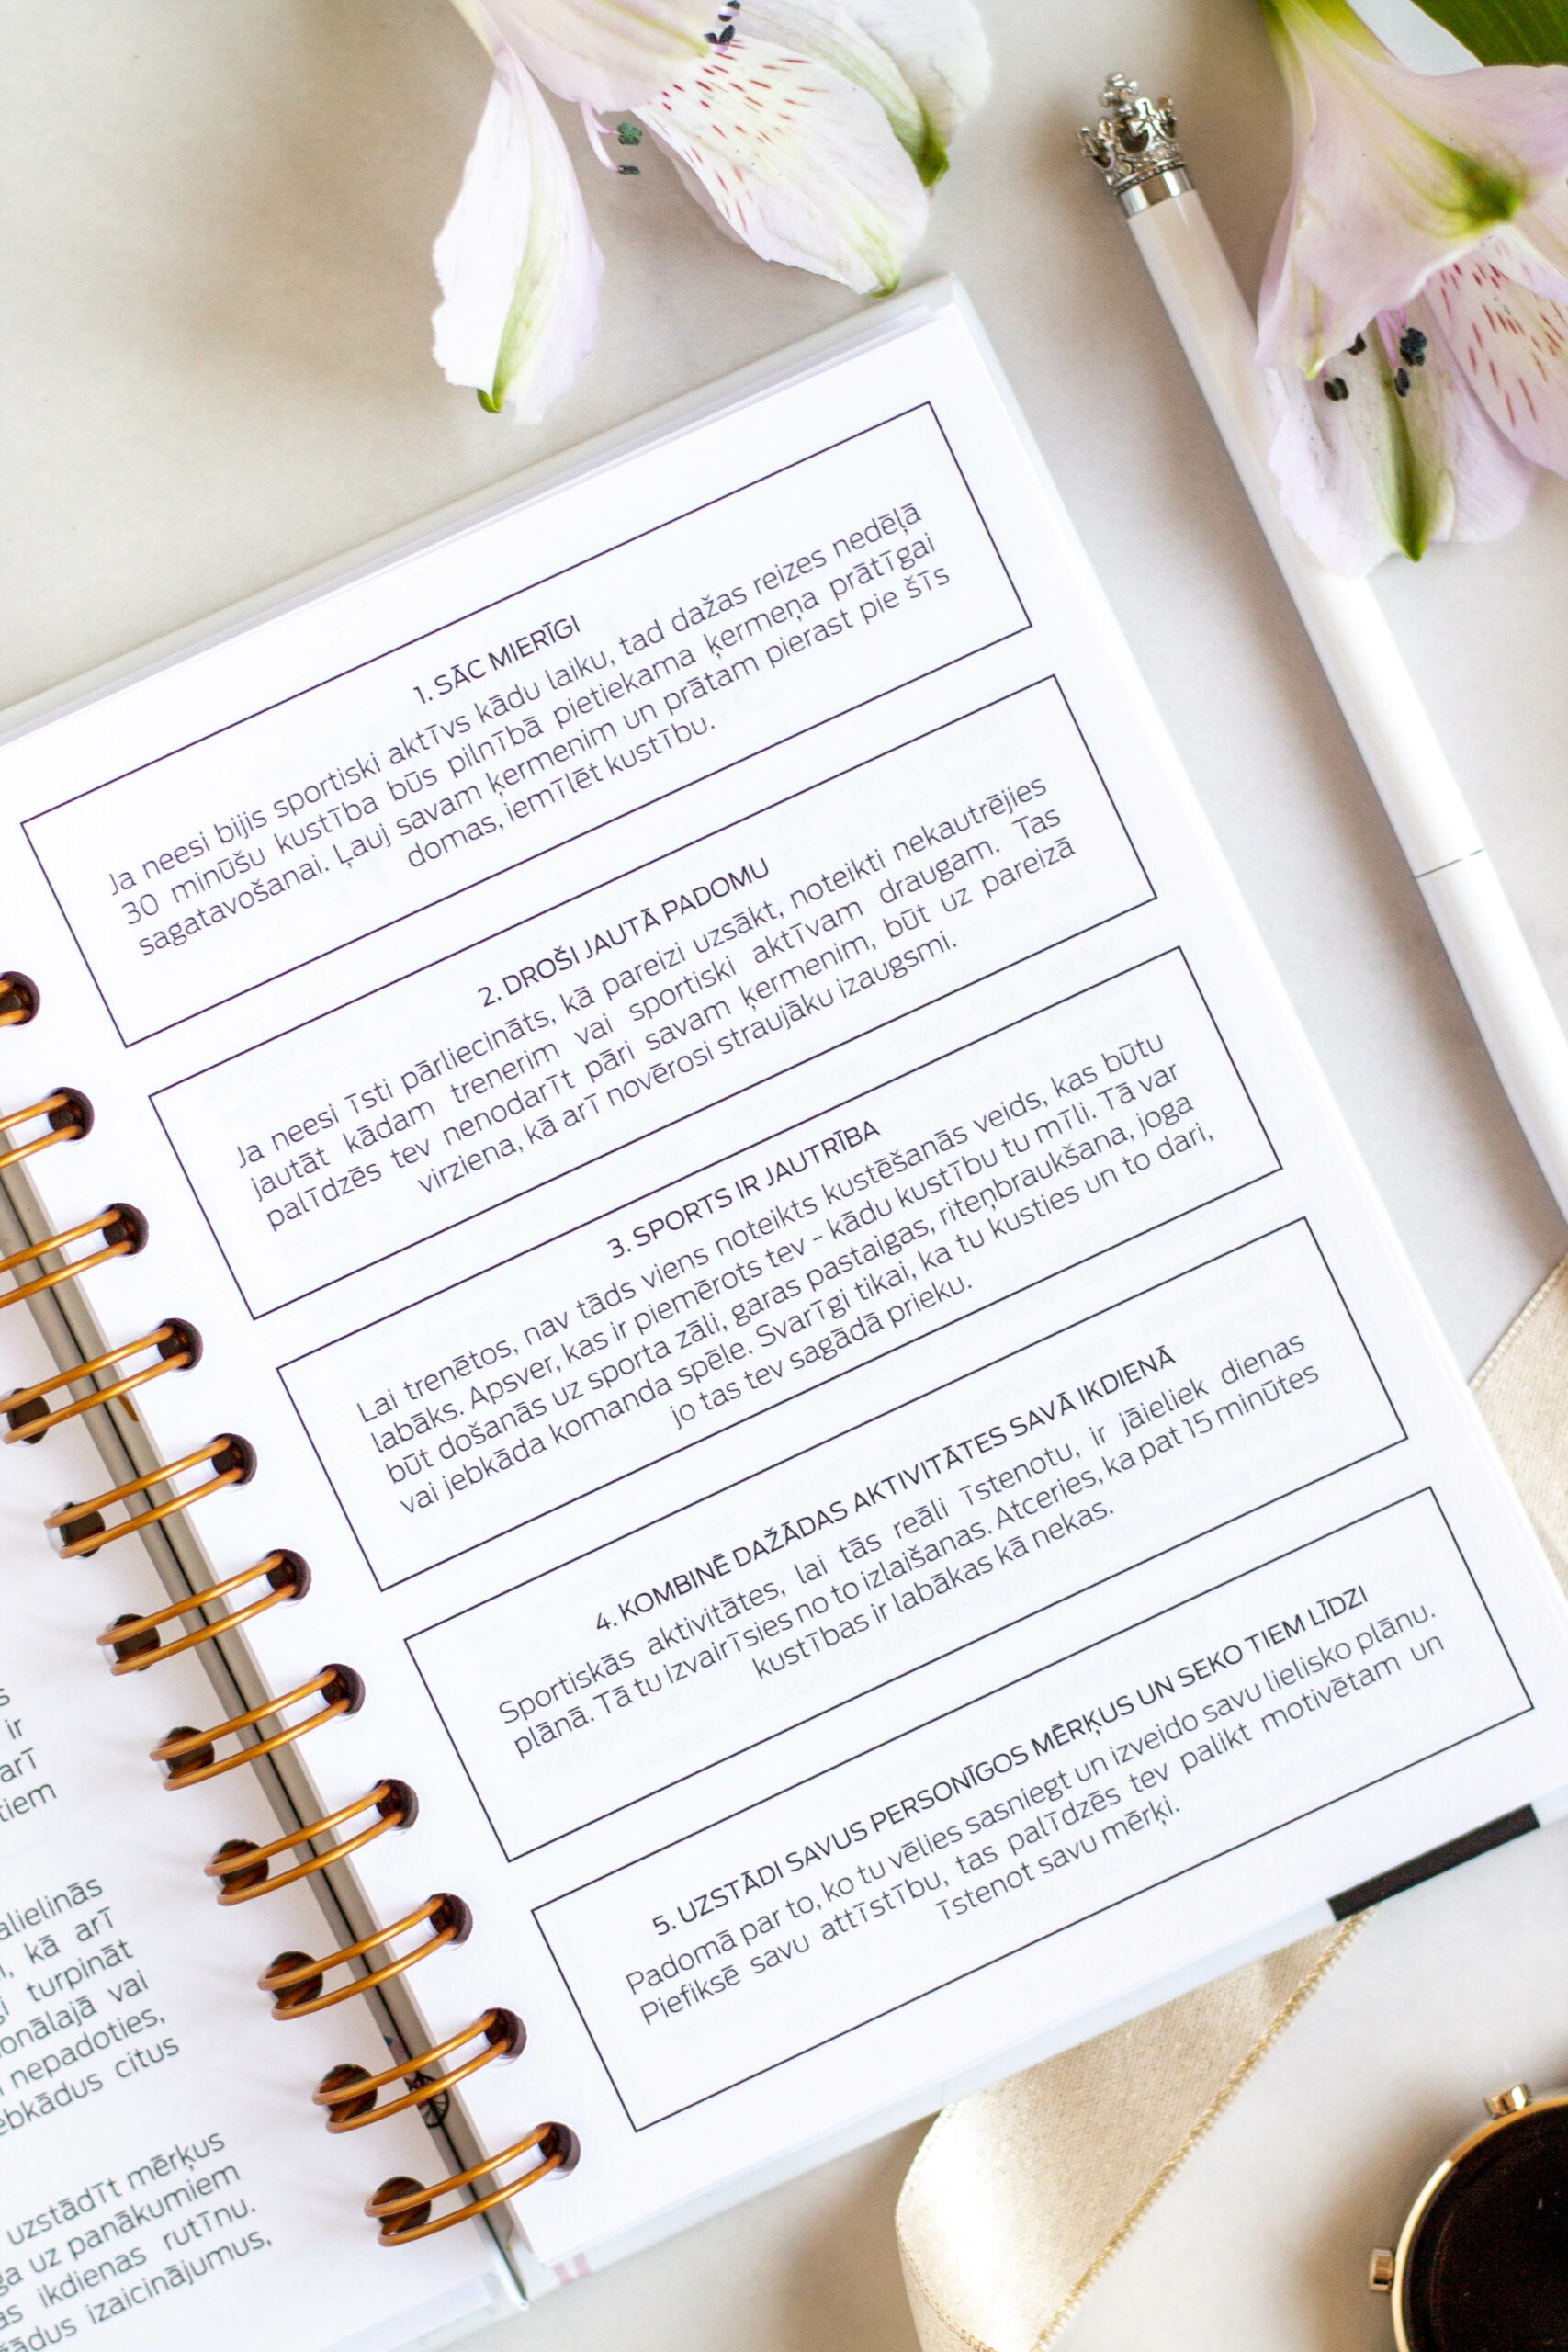 s
ir
arī
tiem
alielinās
, kā arī
i turpināt
onālajā vai
nepadoties,
ebkādus citus
uzstādīt mērķus
ga uz panākumiem
as ikdienas rutīnu.
ādus izaicinājumus,
1. SĀC MIERĪGI
Ja neesi bijis sportiski aktīvs kādu laiku, tad dažas reizes nedēļā
30 minūšu kustība būs pilnībā pietiekama ķermeņa prātīgai
sagatavošanai. Ļauj savam ķermenim un prātam pierast pie šīs
domas, iemīlēt kustību.
2. DROŠI JAUTĀ PADOMU
Ja neesi īsti pārliecināts, kā pareizi uzsākt, noteikti nekautrējies
jautāt kādam trenerim vai sportiski aktīvam draugam. Tas
palīdzēs tev nenodarīt pāri savam ķermenim, būt uz pareizā
virziena, kā arī novērosi straujāku izaugsmi.
3. SPORTS IR JAUTRĪBA
Lai trenētos, nav tāds viens noteikts kustēšanās veids, kas būtu
labāks. Apsver, kas ir piemērots tev - kādu kustību tu mīli. Tā var
būt došanās uz sporta zāli, garas pastaigas, riteņbraukšana, joga
vai jebkāda komanda spēle. Svarīgi tikai, ka tu kusties un to dari,
jo tas tev sagādā prieku.
4. KOMBINĒ DAŽĀDAS AKTIVITĀTES SAVĀ IKDIENĀ
Sportiskās aktivitātes, lai tās reāli īstenotu, ir jāieliek dienas
plānā. Tā tu izvairīsies no to izlaišanas. Atceries, ka pat 15 minūtes
kustības ir labākas kā nekas.
5. UZSTĀDI SAVUS PERSONĪGOS MĒRĶUS UN SEKO TIEM LĪDZI
Padomā par to, ko tu vēlies sasniegt un izveido savu lielisko plānu.
Piefiksē savu attīstību, tas palīdzēs tev palikt motivētam un
īstenot savu mērķi.